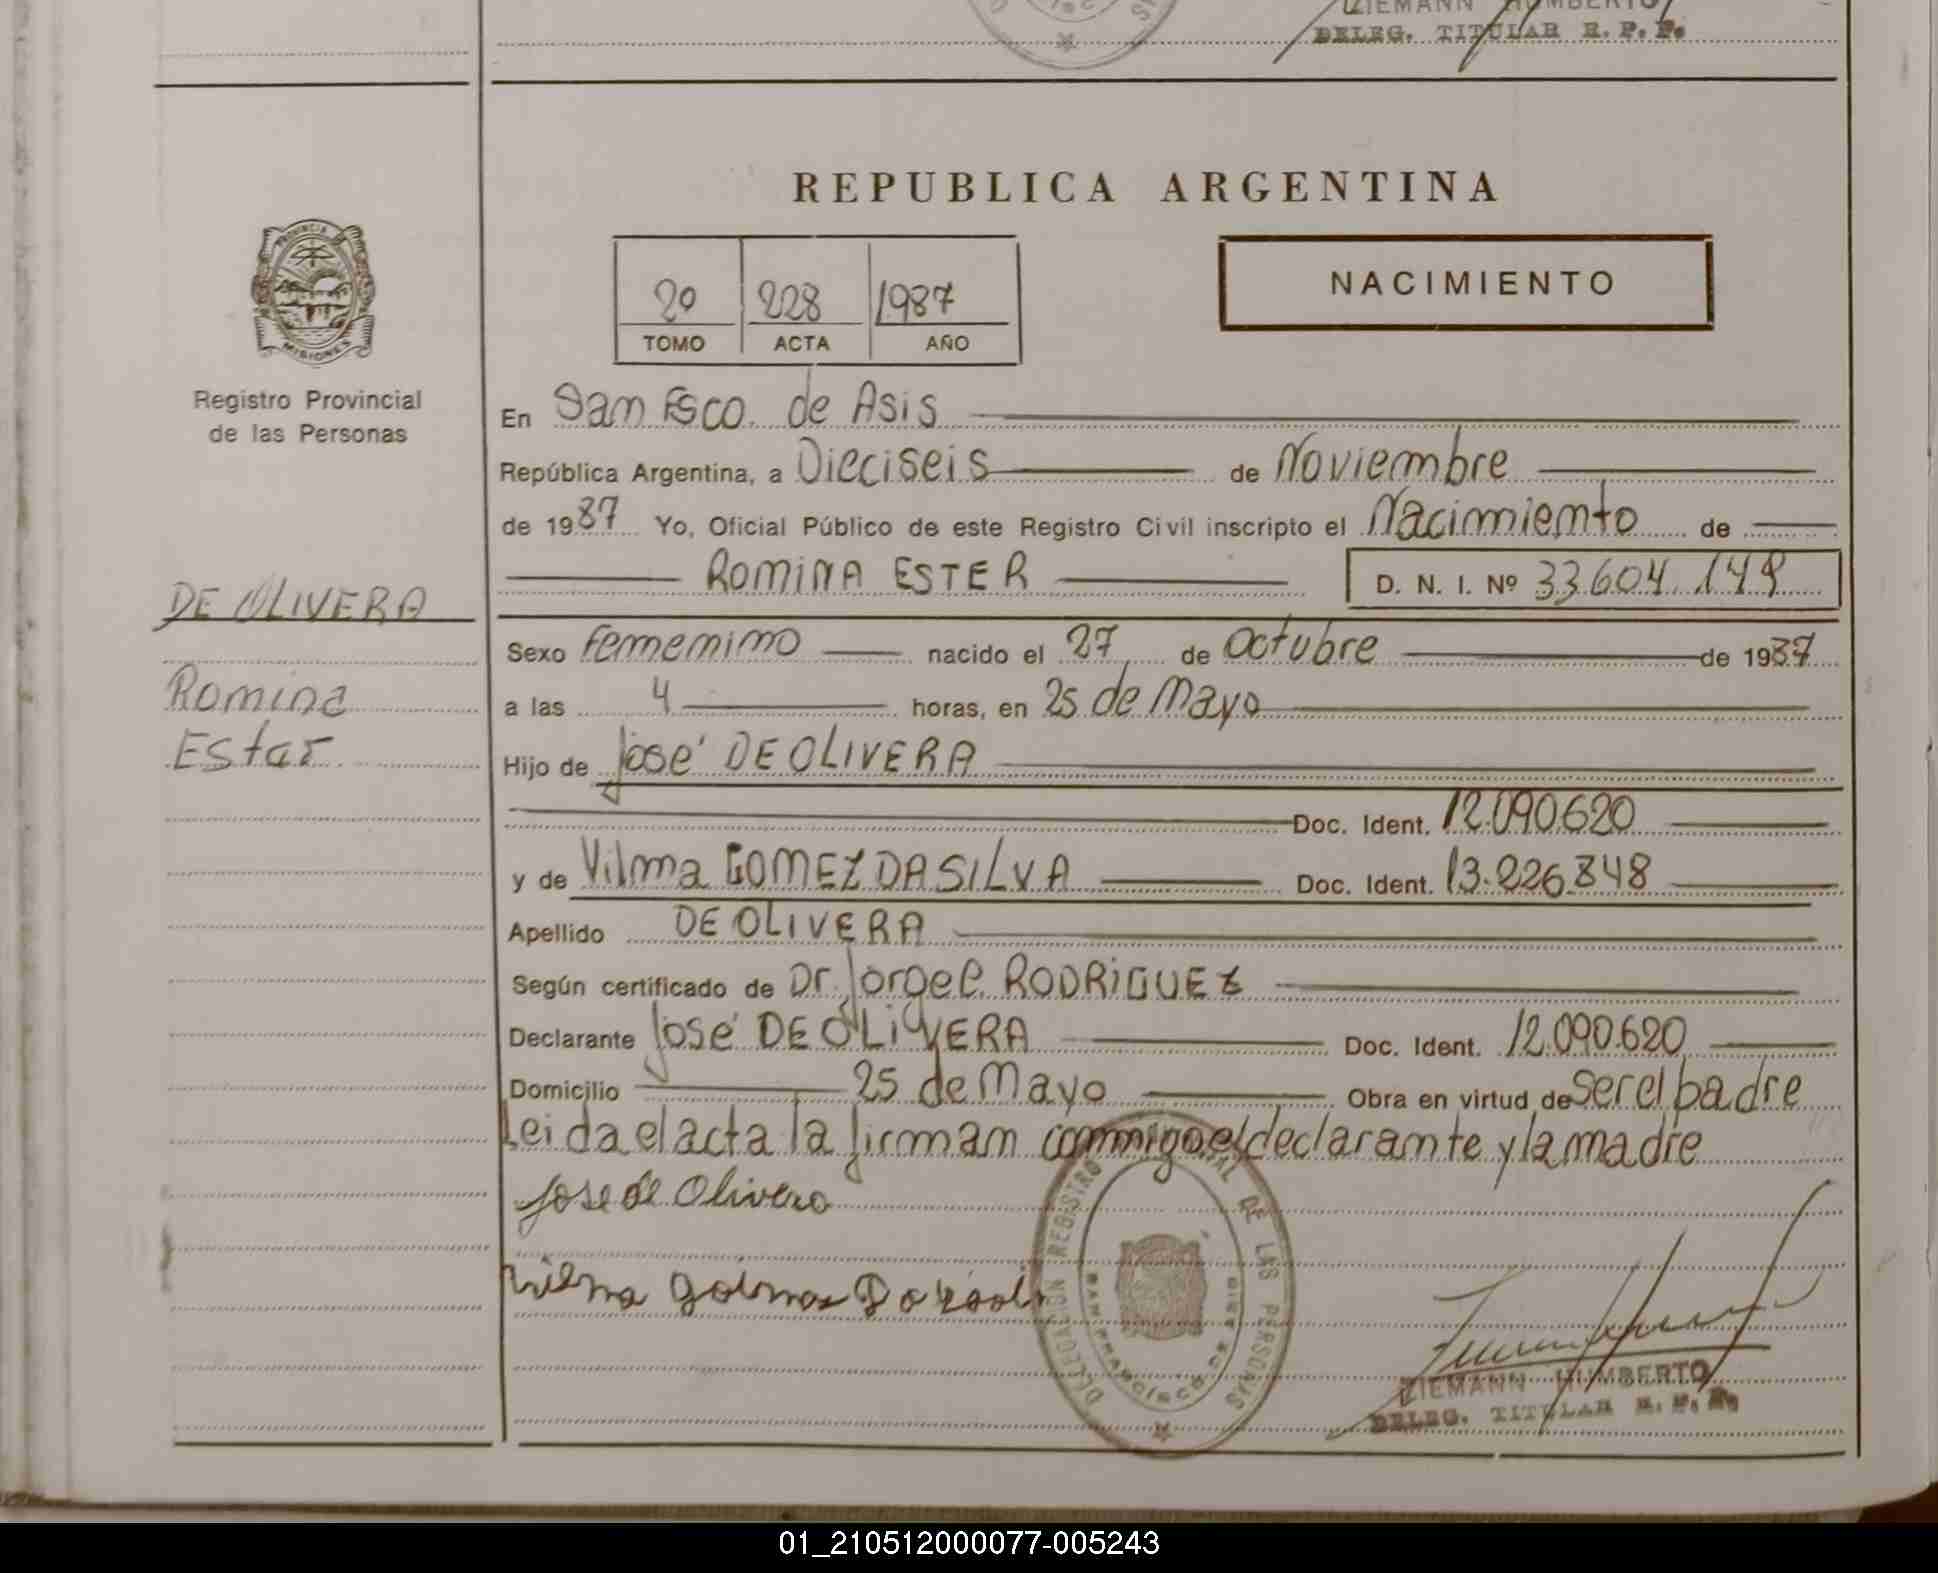 ZIEMANN HUMBERTO
DELEG. TITULAR R. P. P.
REPUBLICA ARGENTINA
PROVINCIA DE
MISIONES
Registro Provincial
de las Personas
20 228 1987
TOMO ACTA AÑO
NACIMIENTO
En San Fsco. de Asis
República Argentina, a Dieciseis de Noviembre
de 1987 Yo, Oficial Público de este Registro Civil inscripto el Nacimiento de
ROMINA ESTER D. N. I. Nº 33.604.149
DE OLIVERA
Romina
Ester
Sexo Femenino nacido el 27 de Octubre de 1987
a las 4 horas, en 25 de Mayo
Hijo de José DE OLIVERA
Doc. Ident. 12.090.620
y de Vilma GOMEZ DA SILVA Doc. Ident. 13.226.848
Apellido DE OLIVERA
Según certificado de Dr. Jorge C. RODRIGUEZ
Declarante José DE OLIVERA Doc. Ident. 12.090.620
Domicilio 25 de Mayo Obra en virtud de ser el padre
Leida el acta la firman conmigo el declarante y la madre
Jose de Olivera
DELEGACION REGISTRO PROVINCIAL DE LAS PERSONAS
SAN FRANCISCO DE ASIS
ZIEMANN HUMBERTO
DELEG. TITULAR R. P. P.
01_210512000077-005243